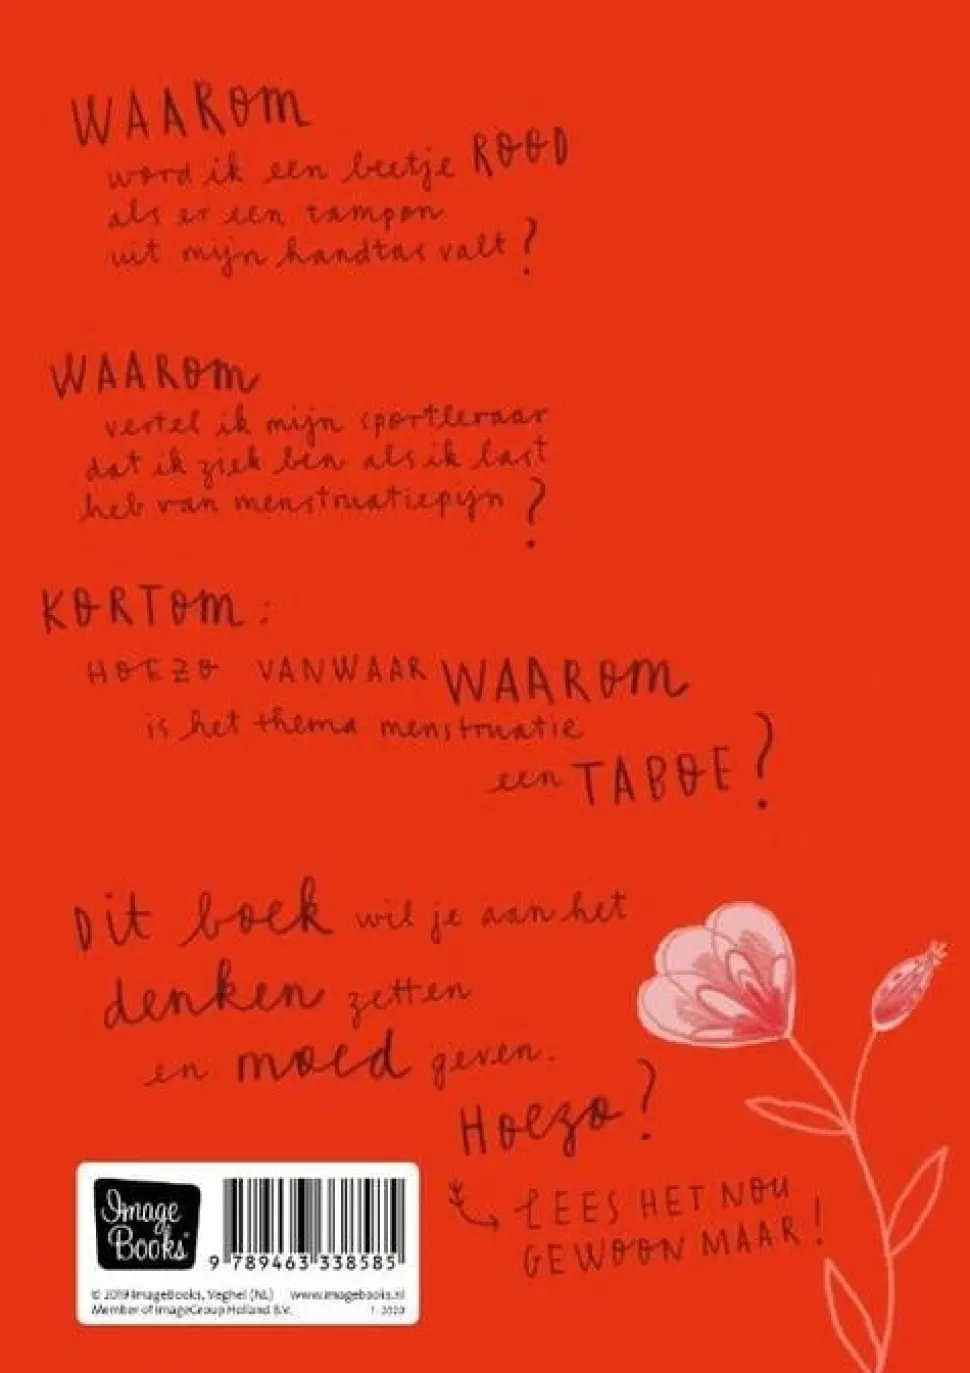 WAAROM
word ik een beetje ROOD
als er een tampon
uit mijn handtas valt?
WAAROM
vertel ik mijn sportleraar
dat ik ziek ben als ik last
heb van menstruatiepijn?
KORTOM:
HOEZO VANWAAR WAAROM
is het thema menstruatie
een TABOE?
Dit boek wil je aan het
denken zetten
en moed geven.
Hoezo?
LEES HET NOU
GEWOON MAAR!
Image
Books
9 789463 338585
© 2019 ImageBooks, Veghel (NL) www.imagebooks.nl
Member of ImageGroup Holland B.V.